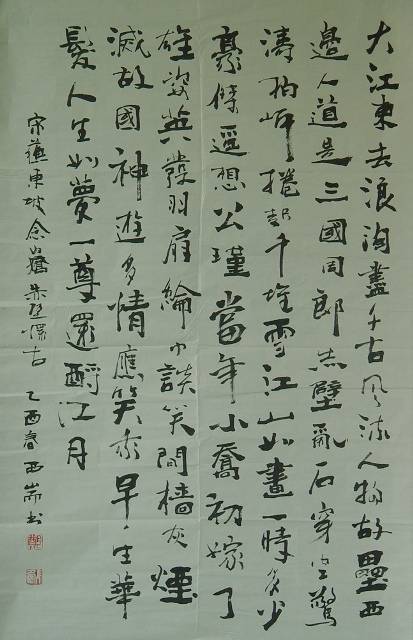 大江東去浪淘盡千古風流人物故壘西
邊人道是三國周郎赤壁亂石穿空驚
濤拍岸捲起千堆雪江山如畫一時多少
豪傑遥想公瑾當年小喬初嫁了
雄姿英發羽扇綸巾談笑間檣灰煙
滅故國神遊多情應笑我早、生華
髮人生如夢一尊還酹江月
宋蘇東坡念奴嬌赤壁懷古 乙酉春西書